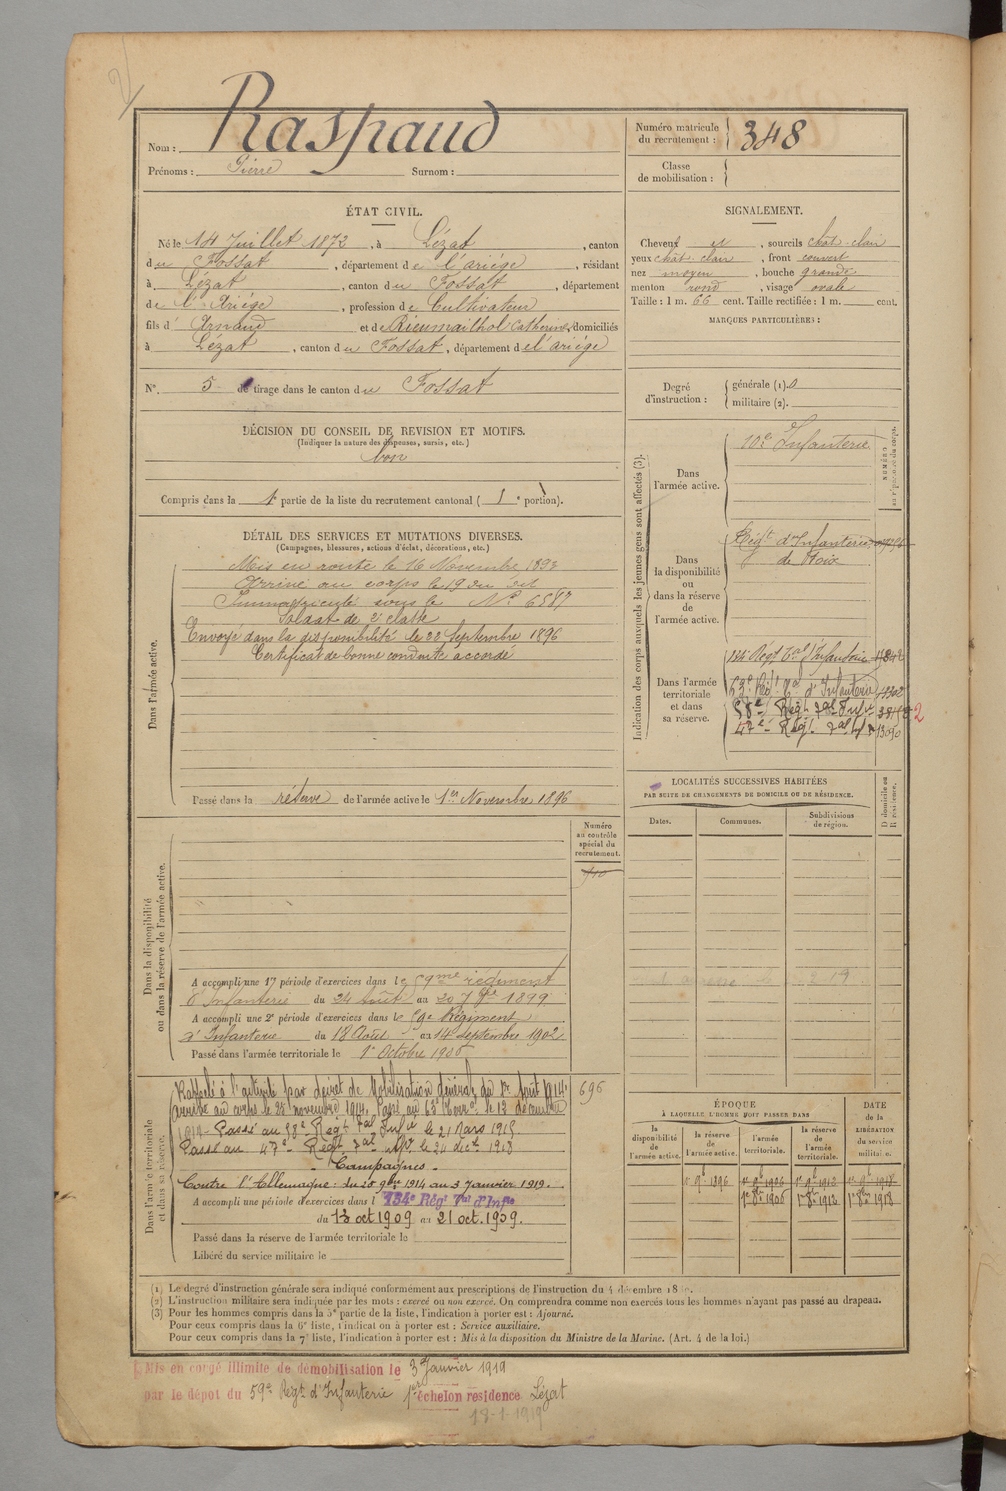 Raspaud
Nom :
Prénoms : Pierre Surnom :
Numéro matricule du recrutement : 348
Classe de mobilisation :
ÉTAT CIVIL.
Né le 14 Juillet 1872, à Lézat, canton
du Fossat, département de l'ariége, résidant
à Lézat, canton du Fossat, département
de l'Ariége, profession de Cultivateur
fils d' Arnaud et de Rieumailhol Catherine, domiciliés
à Lézat, canton du Fossat, département de l'ariége
N°. 5 de tirage dans le canton du Fossat
DÉCISION DU CONSEIL DE REVISION ET MOTIFS.
(Indiquer la nature des dispenses, sursis, etc.)
bon
Compris dans la 1e partie de la liste du recrutement cantonal ( 1e portion).
DÉTAIL DES SERVICES ET MUTATIONS DIVERSES.
(Campagnes, blessures, actions d'éclat, décorations, etc.)
Dans l'armée active.
Mis en route le 16 Novembre 1893
Arrivé au corps le 19 du dit
Immatriculé sous le N° 6587
Soldat de 2e classe
Envoyé dans la disponibilité le 22 Septembre 1896
Certificat de bonne conduite accordé
Passé dans la réserve de l'armée active le 1er Novembre 1896
Numéro au contrôle spécial du recrutement.
910
Dans la disponibilité ou dans la réserve de l'armée active.
A accompli une 1re période d'exercices dans le 59me régiment
d'Infanterie du 24 Août au 20 7bre 1899
A accompli une 2e période d'exercices dans le 59e Régiment
d'Infanterie du 18 Août au 14 Septembre 1902
Passé dans l'armée territoriale le 1er Octobre 1906
Dans l'armée territoriale et dans sa réserve.
Rappelé à l'activité par décret de Mobilisation générale du 1er Août 1914. 696
arrivé au corps le 25 novembre 1914. Passé au 63e le 12 décembre
1914. Passé au 58e Régt tal Infie le 21 Mars 1915.
Passé au 47e Régt tal Infie le 24 déc. 1915
- Campagnes -
Contre l'Allemagne : du 25 9bre 1914 au 3 Janvier 1919.
A accompli une période d'exercices dans l 134e Régt Tal d'Infie
du 13 oct 1909 au 21 oct. 1909.
Passé dans la réserve de l'armée territoriale le
Libéré du service militaire le
SIGNALEMENT.
Cheveux et, sourcils chât-clair
yeux chât-clair, front couvert
nez moyen, bouche grande
menton rond, visage ovale
Taille : 1 m. 66 cent. Taille rectifiée : 1 m. cent.
MARQUES PARTICULIÈRES :
Degré d'instruction : générale (1). 0
militaire (2).
Indication des corps auxquels les jeunes gens sont affectés (3).
NUMÉRO au répertoire du corps.
Dans l'armée active.
10e Infanterie
Dans la disponibilité ou dans la réserve de l'armée active.
Régt d'Infanterie
de Foix
Dans l'armée territoriale et dans sa réserve.
134 Régt Tal d'Infanterie
63e Régt Tal d'Infanterie
58e Régt Tal Infie
47e Régt Tal Infie 13090
LOCALITÉS SUCCESSIVES HABITÉES
PAR SUITE DE CHANGEMENTS DE DOMICILE OU DE RÉSIDENCE.
D domicile ou R résidence.
Dates. Communes. Subdivisions de région.
ÉPOQUE
À LAQUELLE L'HOMME DOIT PASSER DANS
DATE de la LIBÉRATION du service militaire.
la disponibilité de l'armée active. la réserve de l'armée active. l'armée territoriale. la réserve de l'armée territoriale.
1er 9bre 1896 1er 9bre 1906 1er 9bre 1912 1er 9bre 1918
1er 8bre 1906 1er 8bre 1912 1er 8bre 1918
(1) Le degré d'instruction générale sera indiqué conformément aux prescriptions de l'instruction du 4 décembre
(2) L'instruction militaire sera indiquée par les mots : exercé ou non exercé. On comprendra comme non exercés tous les hommes n'ayant pas passé au drapeau.
(3) Pour les hommes compris dans la 5e partie de la liste, l'indication à porter est : Ajourné.
Pour ceux compris dans la 6e liste, l'indication à porter est : Service auxiliaire.
Pour ceux compris dans la 7e liste, l'indication à porter est : Mis à la disposition du Ministre de la Marine. (Art. 4 de la loi.)
Mis en congé illimité de démobilisation le 3 Janvier 1919
par le dépot du 59e Régt d'Infanterie 1er échelon résidence Lézat
18-1-1919